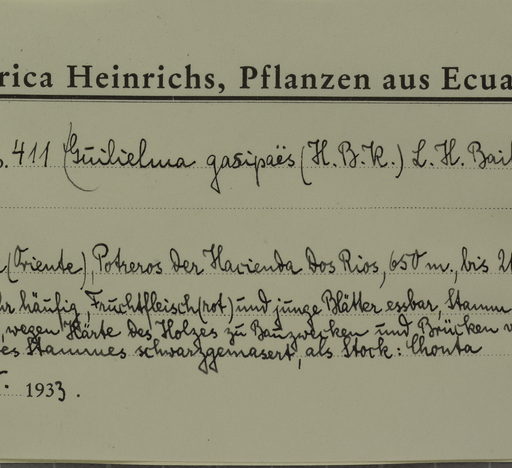 rica Heinrichs, Pflanzen aus Ecua
411 Guilielma gasipaës (H.B.K.) L.H. Bail
(Oriente), Potreros der Hacienda Dos Rios, 650 m., bis
häufig, Fruchtfleisch (rot) und junge Blätter essbar, Stamm
, wegen Härte des Holzes zu Bauzwecken und Brücken
es Stammes schwarzgemasert, als Stock: Chonta
1933.